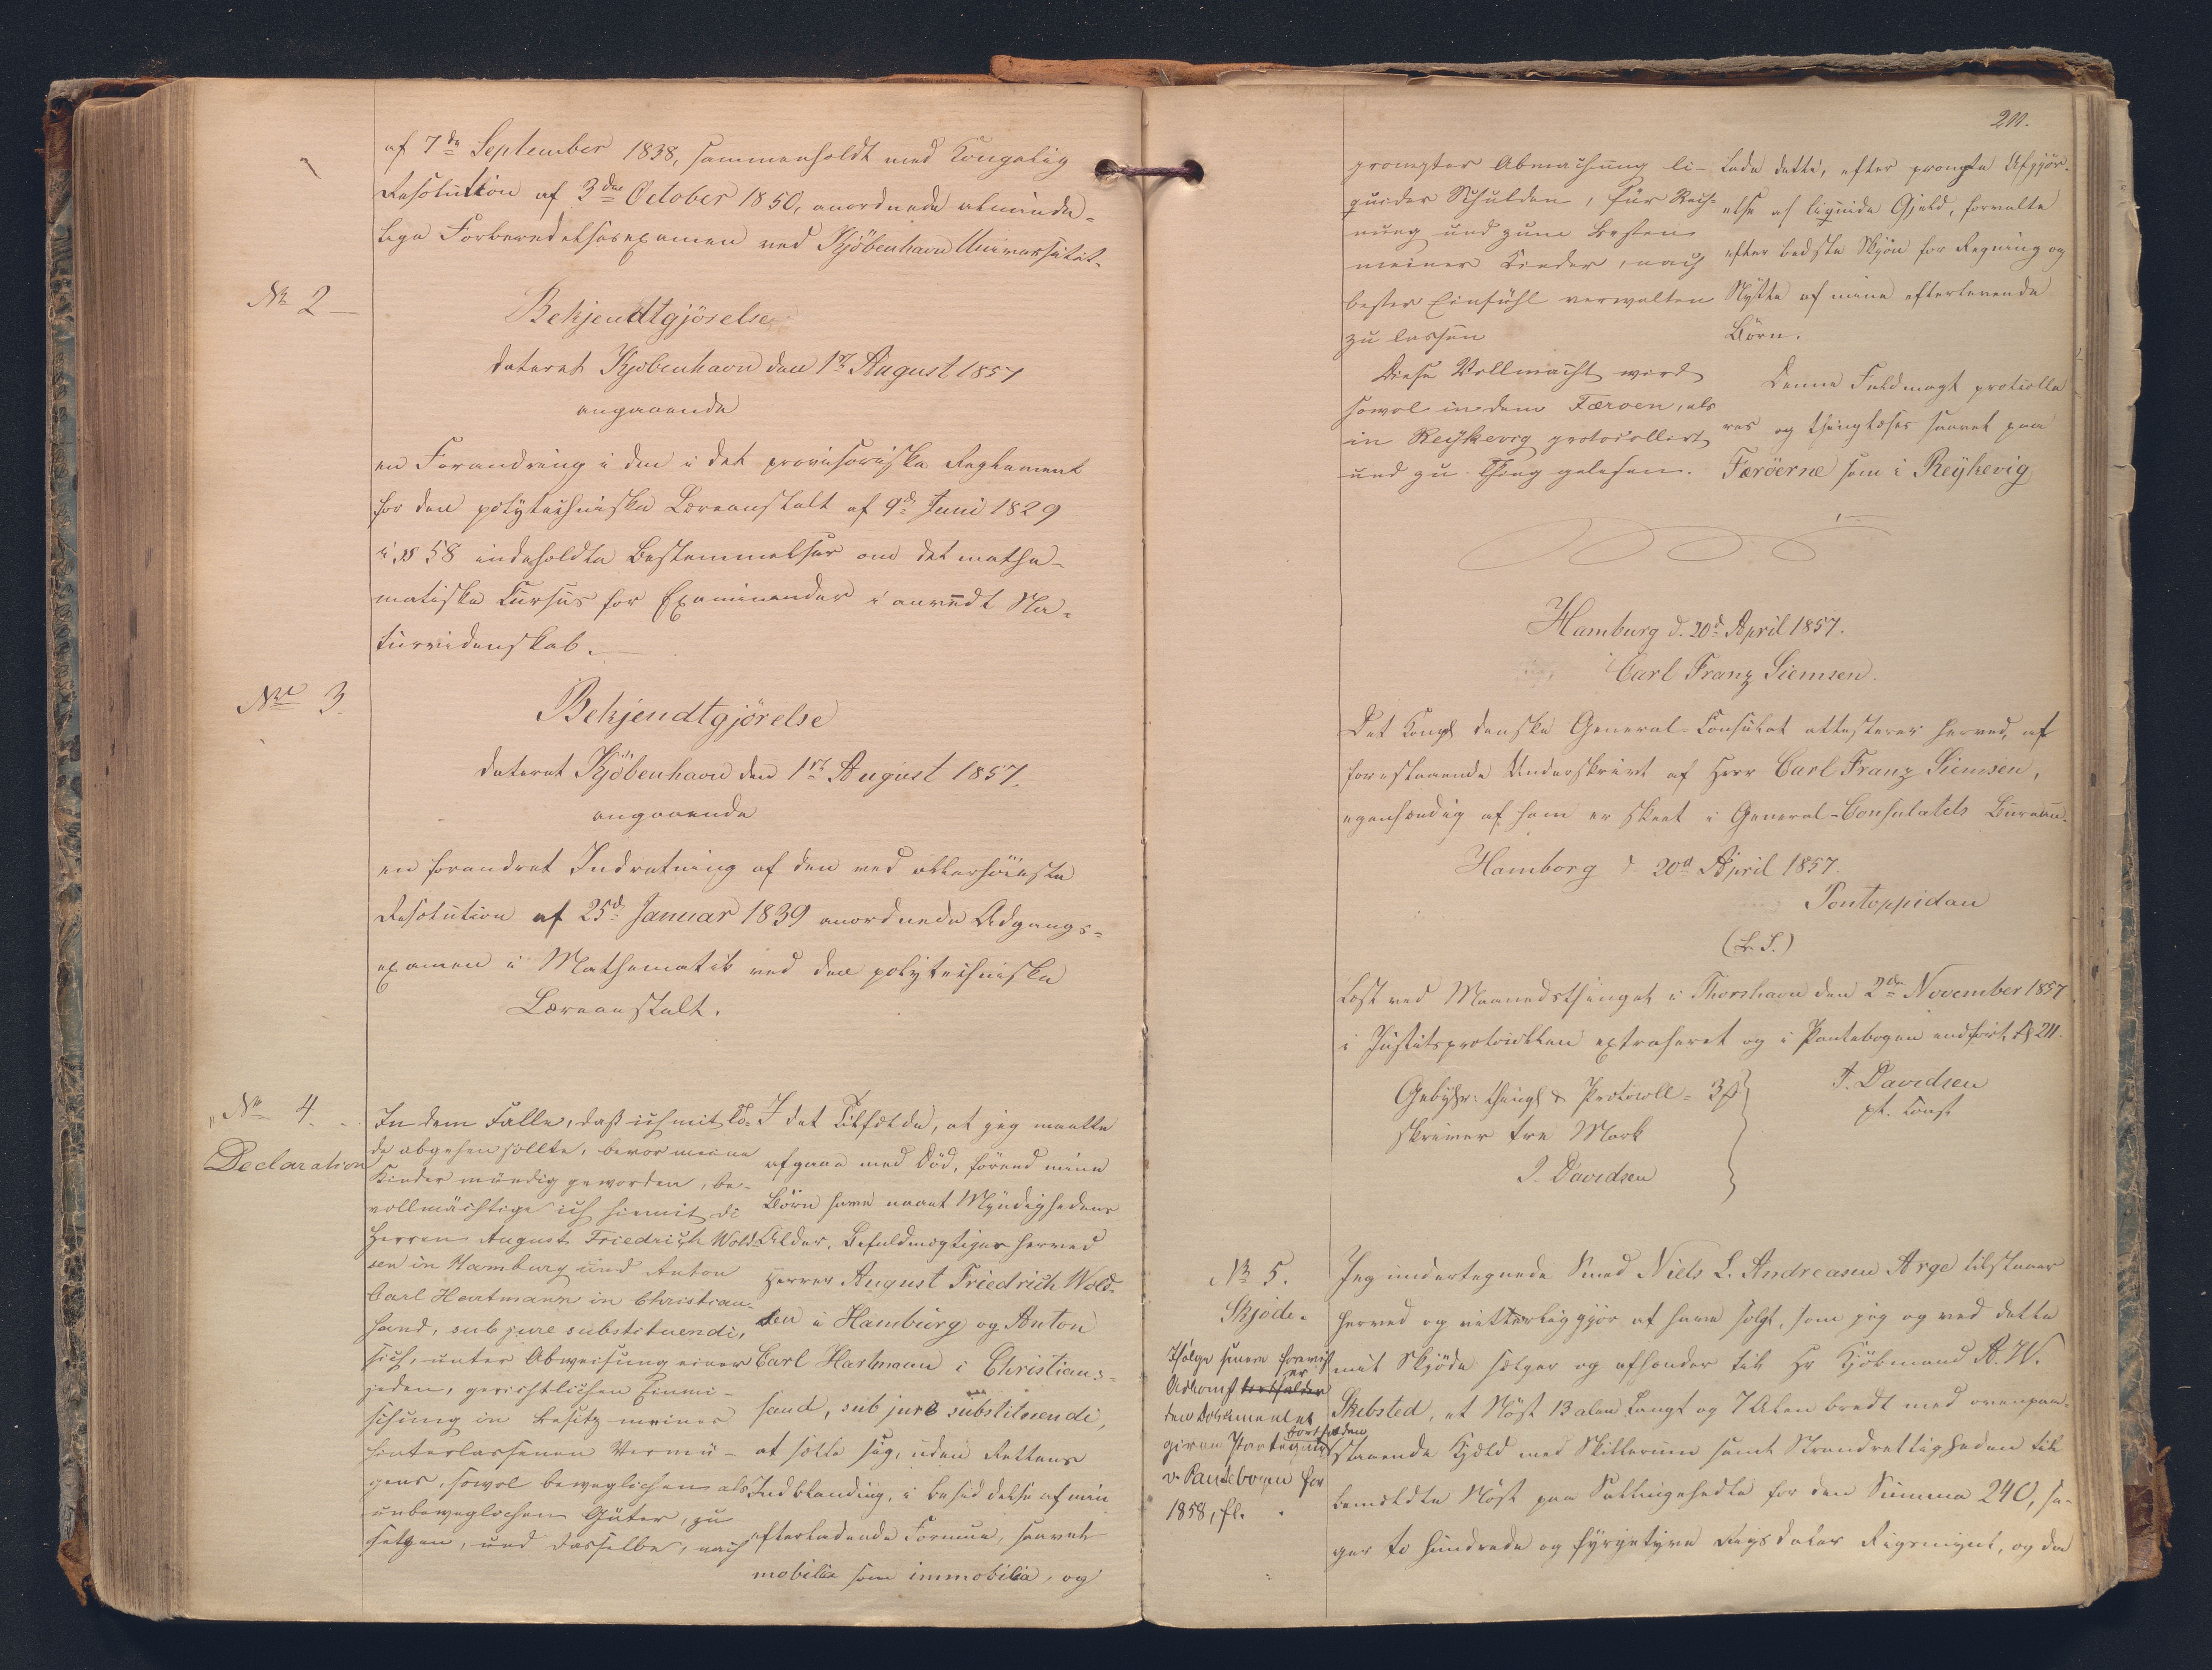 af 7de September 1838, sammenholdt med Kongelig
Resolution af 3die October 1850, anordnede alminde-
lige Forberedelsesexamen ved Kjöbenhavn Universitet.
No 2
Bekjendtgjörelse
dateret Kjöbenhavn den 1ste August 1857
angaaende
en Forandring i den i det provisoriske Reglement
for den polytechniske Læreanstalt af 9de Juni 1829
i § 58 indeholdte Bestemmelser om det mathe-
matiske Cursus for Examinander i anvendt Na-
turvidenskab.
No 3.
Bekjendtgjörelse
dateret Kjöbenhavn den 1ste August 1857.
angaaende
en forandret Indretning af den ved allerhöieste
Resolution af 25de Januar 1839 anordnede Adgangs-
examen i Mathematik ved den polytechniske
Læreanstalt.
No 4.
Declaration
In dem Falle, daß ich mit To-
de abgehen sollte, bevor meine
Kinder mündig geworden, be-
vollmächtige ich hiemit di
Herren August Friedrich Wold-
sen in Hamburg und Anton
Carl Hartmann in Christian-
sand, sub jure substituendi,
sich, unter Abweisung einer
jeden, gerichtlichen Einmi-
schung in Besitz meines
hinterlassenen Vermö-
gens, sowol beweglichen als
unbeweglichen Güter, zu
setzen, und dasselbe, nach
I det Tilfælde, at jeg maatte
afgaae med Död, förend mine
Börn have naaet Myndighedens
Alder, befuldmægtiger herved
Herrer August Friedrich Wold-
sen i Hamburg og Anton
Carl Hartmann i Christians-
sand, sub jure substituendi,
at sætte sig, uden Rettens
Indblanding, i Besiddelse af min
efterladende Formue, saavel
mobilia som immobilia, og
211.
prompter Abmachung li-
quider Schulden, für Rech-
nung und zum Besten
meiner Kinder, nach
bester Einsühl verwalten
zu lassen
Diese Vollmacht wird
sowol in dem Færoen, als
in Reÿkevig protocollirt
und zu Thing gelesen.
lade dette, efter prompte Afgjör-
else af liquide Gjeld, forvalte
efter bedste Skjön for Regning og
Nytte af mine efterlevende
Börn.
Denne Fuldmagt protolle
res og thinglæses saavel paa
Færöerne som i Reÿkevig
Hamburg d. 20de April 1857.
Carl Franz Siemsen.
Det Kongl danske General-Consulat attesterer herved, at
forestaaende Underskrivt af Herr Carl Franz Siemsen,
egenhændig af ham er skeet i General-Consulatets Bureau.
Hamborg d. 20de April 1857.
Pontoppidan
(L. S.)
Læst ved Maanedsthinget i Thorshavn den 2den November 1857
i Justitsprotocollen extraheret og i Pantebogen indfört, fol 211.
Gebyhr: thingl & Protocoll = 3
skriver tre Mark
J. Davidsen
J. Davidsen
pt. const
No 5.
Skjöde.
Ifølge senere forevist
Adkomst er
den Documentet
givne Paategning bortfalden
v. Pantebogen for
1858, fl.
Jeg undertegnede Smed Niels L. Andreasen Arge tilstaaer
herved og vitterliggjör at have solgt, som jeg og ved dette
mit Skjöde sælger og afhænder til Hr Kjöbmand A. W.
Skibsted, et Nöst 13 alen Langt og 7 Alen bredt med ovenpaa-
staaende Kjæld med Skillerum samt Strandrettigheden til
bemeldte Nöst paa Sallingehedte for den Summa 240, si-
ger to hundrede og fyrgetyve Rigsdaler Rigsmynt, og da